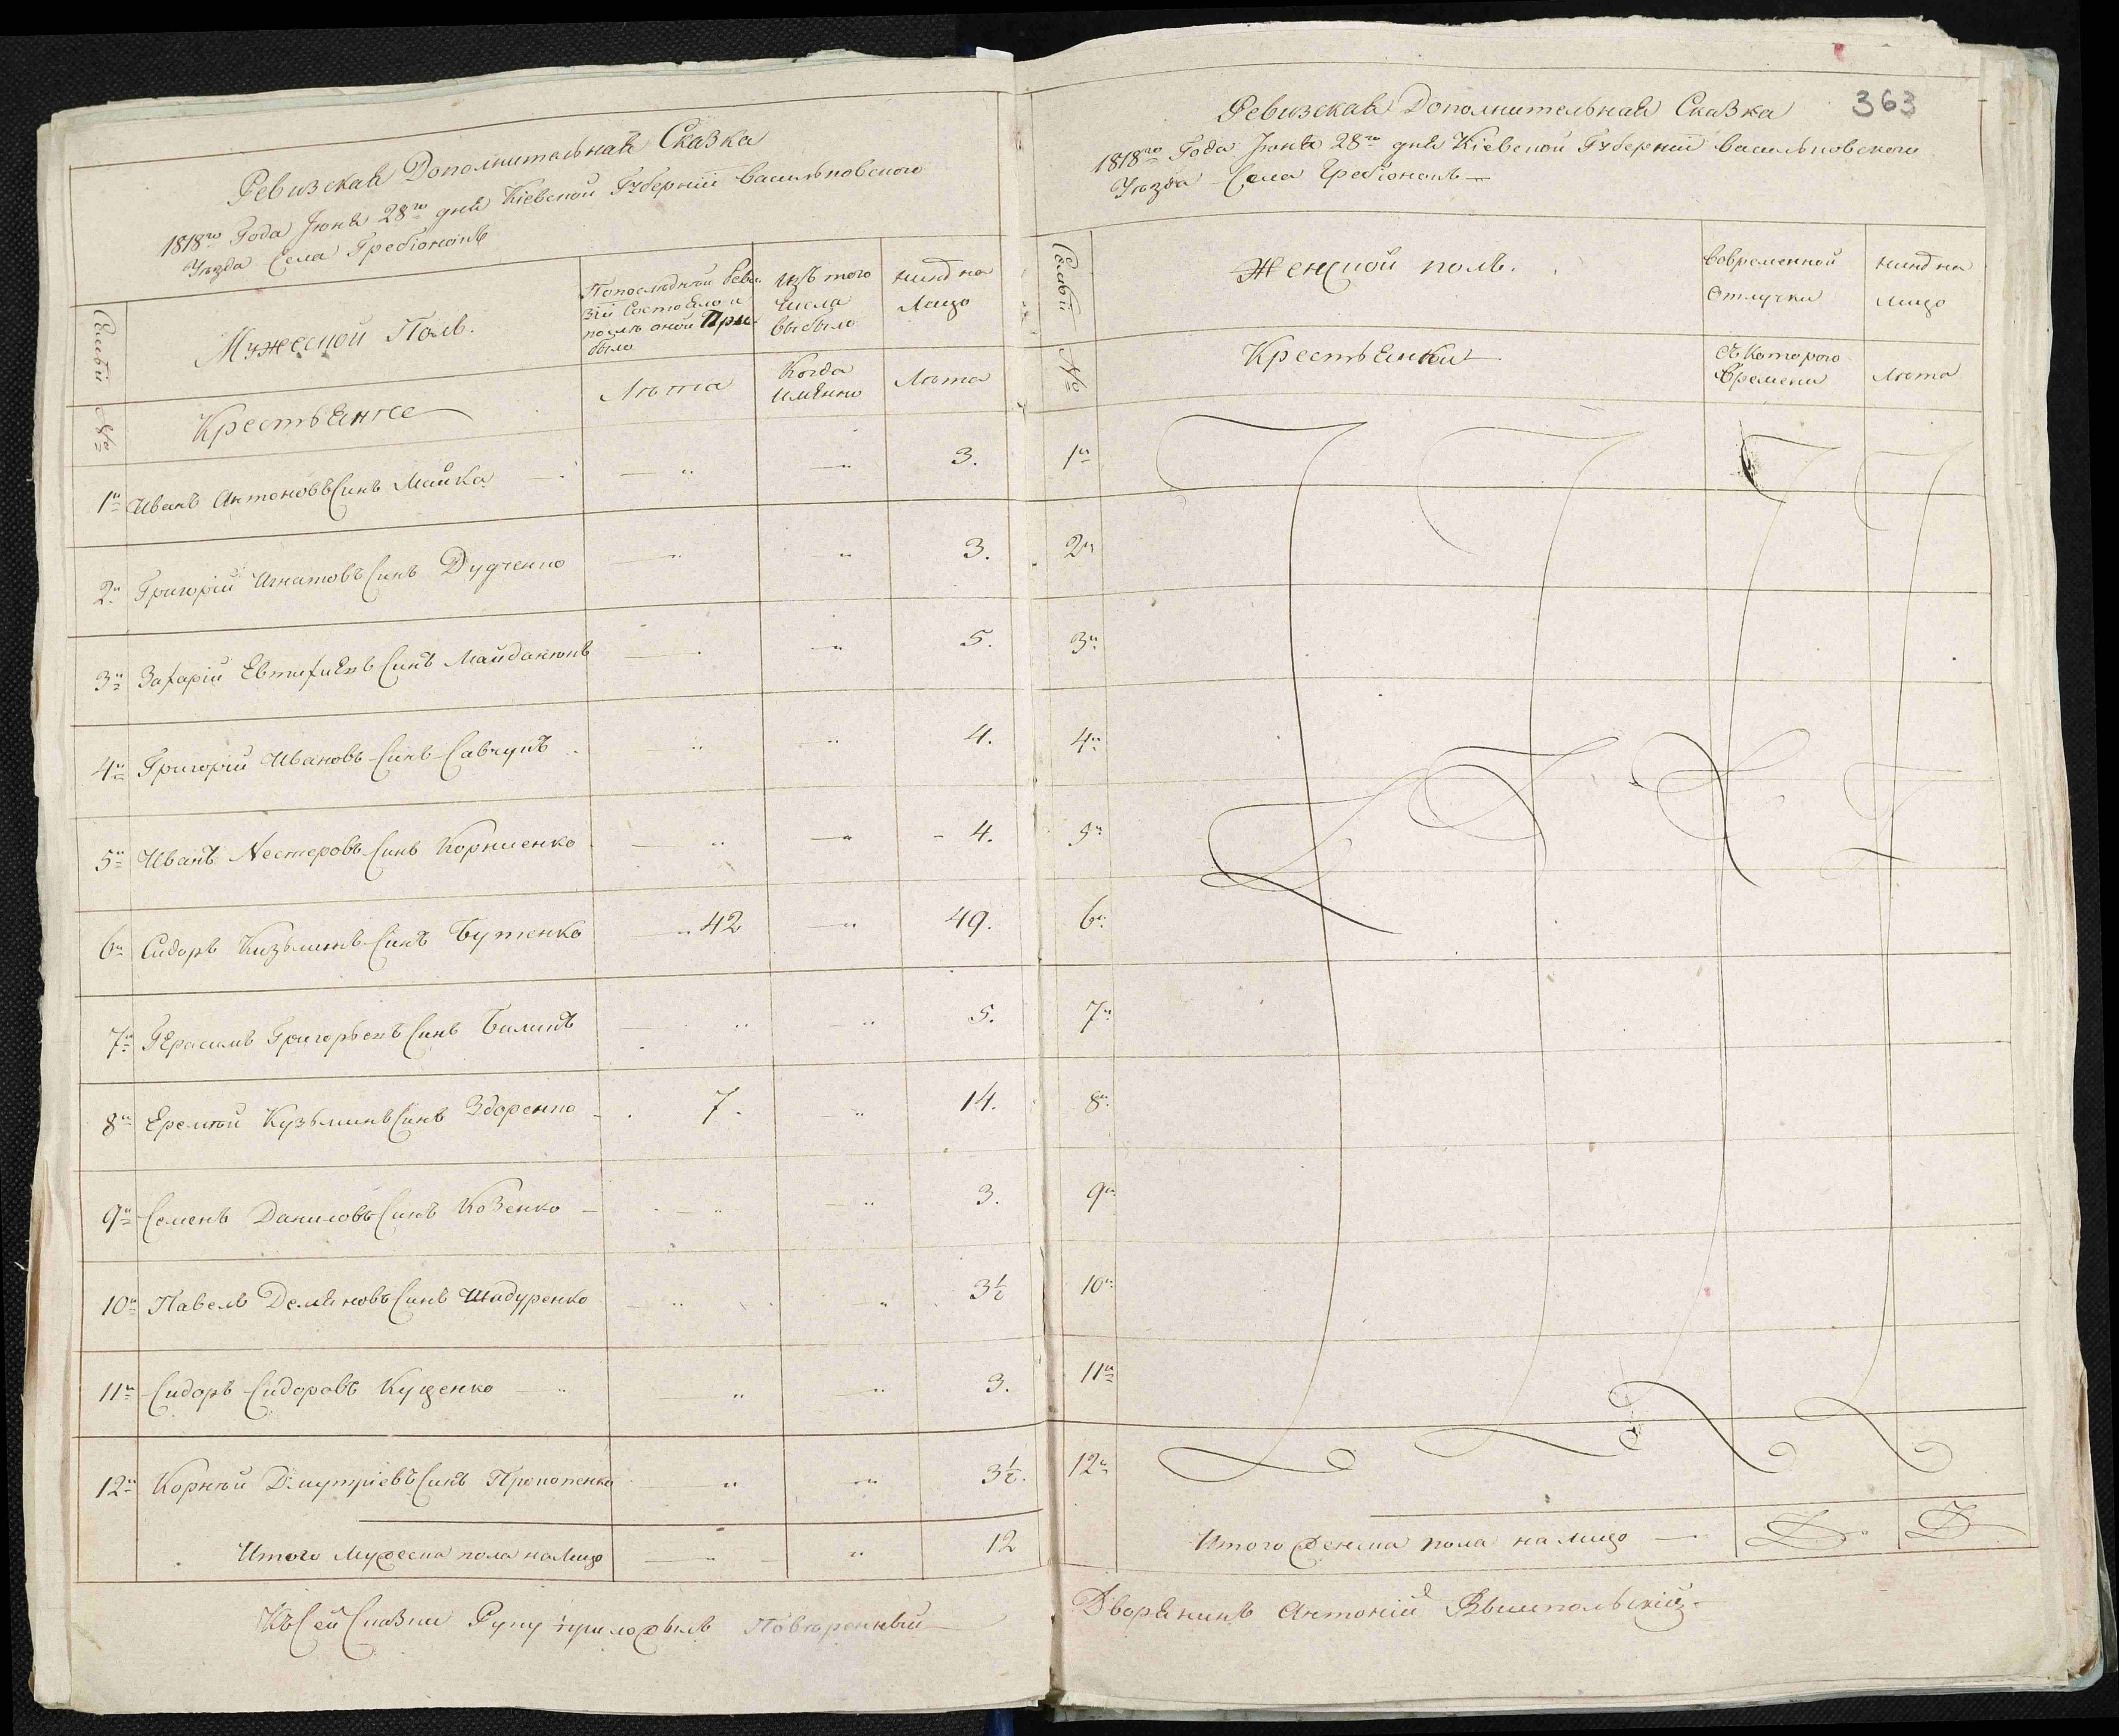 Ревизская Дополнительная Сказка
1818го Года Июня 28го дня Кіевской Губерніи Васильковского
Уезда Села Гребіонокъ
Семьи №
Мужеской Полъ.
По последней реви
зіи Состояло и
после оной При
было
Изъ того
Числа
выбыло
Нинѣ на
Лицо
Крестьяне
Лѣта
Когда
имянно
Лѣта
1й Иванъ Антоновъ Синъ Майка 3.
2й Григорій Игнатовъ Синъ Дудченко 3.
3й Захарій Евтихіевъ Синъ Майданюкъ 5.
4й Григорій Ивановъ Синъ Савчукъ 4.
5й Иванъ Нестеровъ Синъ Корниенко 4.
6й Сидоръ Кизьминъ Синъ Бутенко 42 49.
7й Герасимъ Григорьевъ Синъ Билыкъ 5.
8й Еремѣй Кузьминъ Синъ Здоренко 7. 14.
9й Семенъ Даниловъ Синъ Козенко 3.
10й Павелъ Демяновъ Синъ Шадуренко 3½
11й Сидоръ Сидоровъ Куценко 3.
12й Корнѣй Дмутріевъ Синъ Прокопенко 3½.
Итого Мужеска пола на Лицо 12
Къ Сей Сказки Руку приложылъ Повѣренный
363
Ревизская Дополнительная Сказка
1818го Года Июня 28го дня Кіевской Губерніи Васильковского
Уѣзда Села Гребіонокъ
Семьи №
Женской полъ.
Вовременной
Отлучки
Нинѣ на
лицо
Крестьянки
Съ Которого
Времени
Лѣта
1й
2й
3й
4й
5й
6й
7й
8й
9й
10й
11й
12й
Итого Женска пола на лицо
Дворянинъ Антоній Вышпольскій